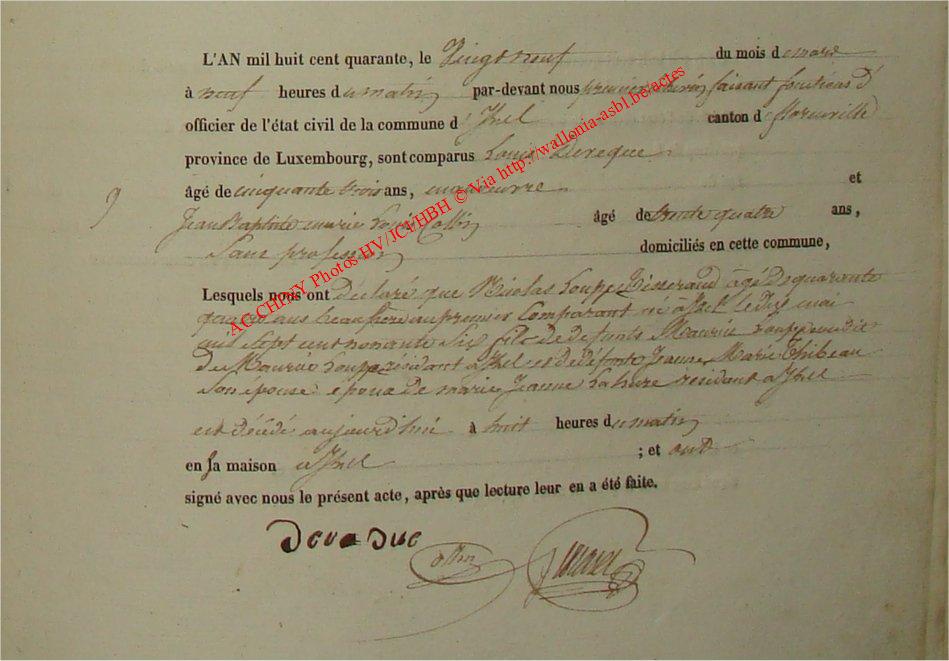 L'AN mil huit cent quarante, le Vingt neuf du mois de mars
à neuf heures du matin par-devant nous premier faisant fonctions d'
officier de l'état civil de la commune d'Izel canton de florenville
province de Luxembourg, sont comparus Louis
âgé de cinquante trois ans, manoeuvre et
9
Jean Baptiste marie Louis Collin âgé de trente quatre ans,
Sans profession domiciliés en cette commune,
Lesquels nous ont déclaré que Nicolas Louppe Tisserand âgé de quarante
quatre ans beau frère au premier Comparant né à Izel le dix mai
mil sept cent nonante Six fils de defunts Maurice
de Maurice Louppe résidant à Izel et de défunte Jeanne Marie Thibeau
Son épouse époux de marie Jeanne Lahure résidant à Izel
est décédé aujourd'hui à huit heures du matin
en sa maison à Izel ; et ont
signé avec nous le présent acte, après que lecture leur en a été faite.
AG CHINY Photos HV/JCl/HBH © Via http://wallonia-asbl.be/actes